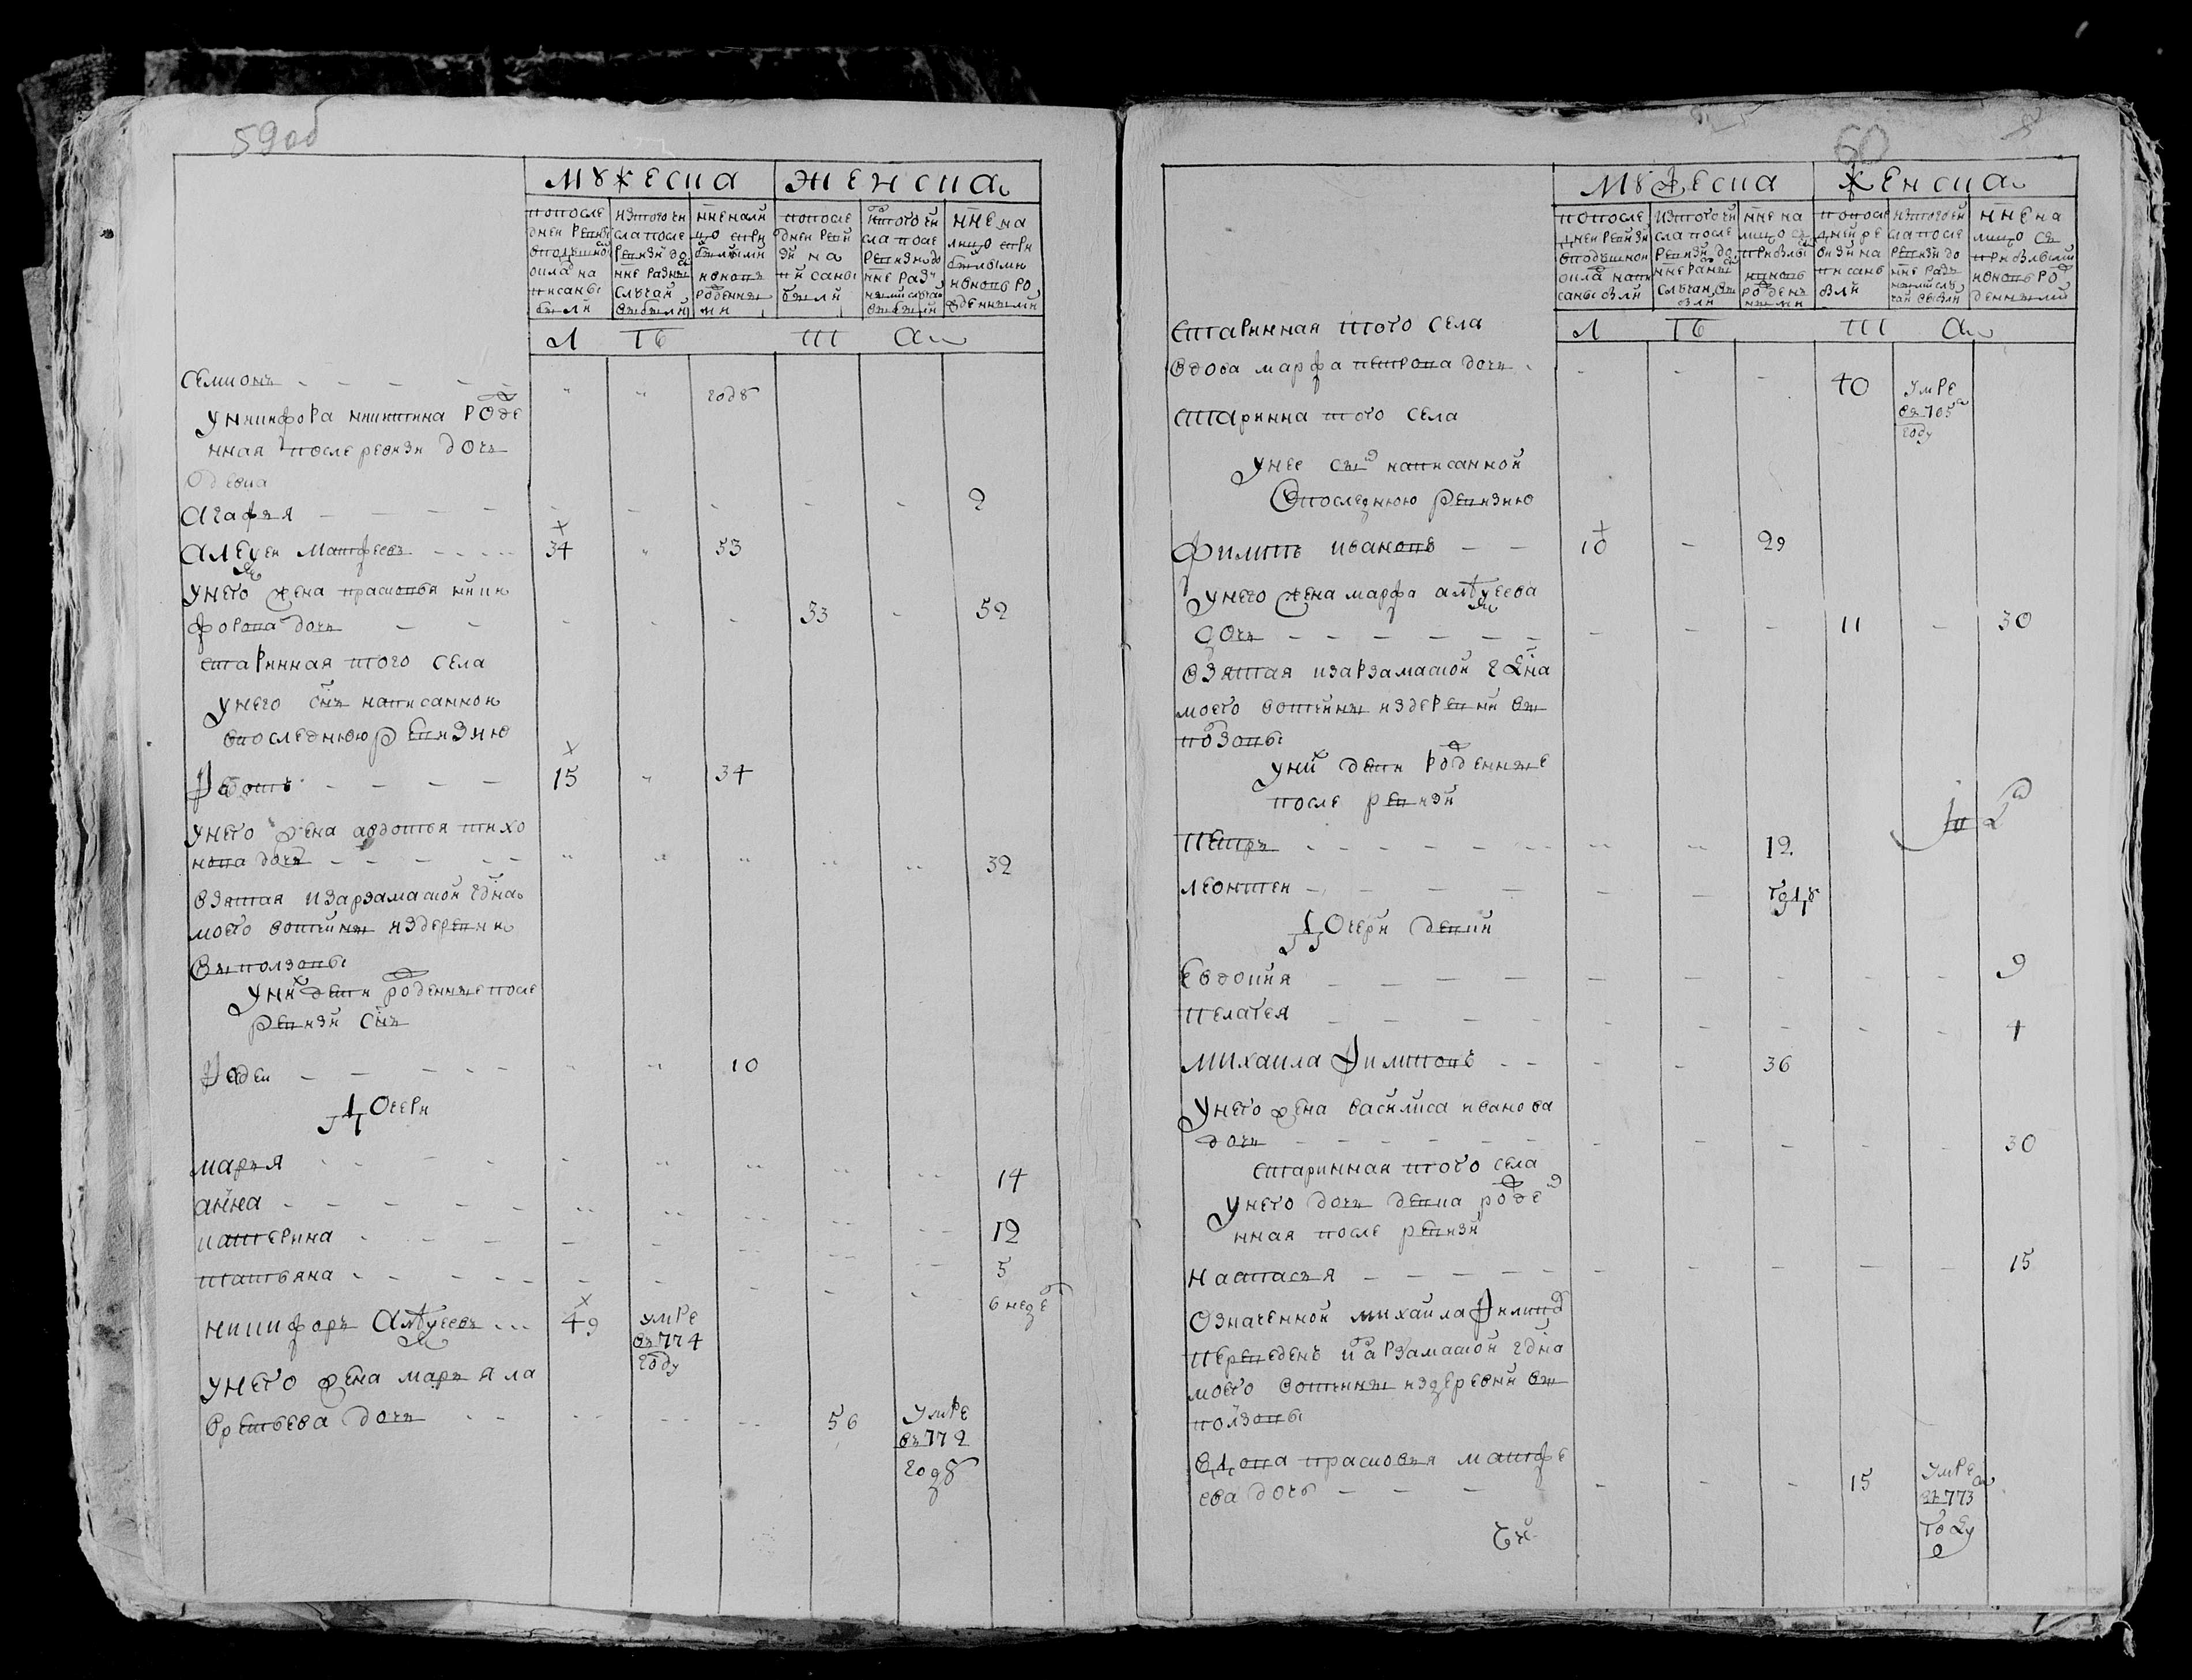 59об
Мужеска
Женска
по после
дней ревизи
в подушной
оклад на
писаны
были
из того чи
сла после
ревизи до
ныне разны
случаи
выбыли
ныне нали
цо с при
былыми
и вновь
рожденны
ми
по после
дней реви
зи на
писаны
были
из того чи
сла после
ревизи до
ныне раз
ными случаи
выбыли
ныне на
лицо с при
былыми
и вновь ро
жденными
Л Ѣ Т А
Семионъ годѣ
У никифора никитина рожде
нная после ревизи дочь
девка
Агафья 2
Алеѯеи Матфеевъ 34 53
У него жена прасковья ники
форова дочь 33 52
старинная того села
У него сынъ написанной
в последнюю ревизию
Федотъ 15 34
У него жена авдотья тихо
нова дочь 32
взятая из арзамаской една
моего вотчины из деревни
Выползовы
У них дети рожденные после
ревизи сынъ
Фадеи 10
Дочери
Марья 14
анна 12
катерина 5
татьяна 6 неде
никифоръ Алѯеевъ 49 умре
въ 774
году
У него жена марья ла
врентьева дочь 56 умре
въ 772
годѣ
60
Мужеска
Женска
по после
дней ревизи
в подушной
оклад напи
саны были
из того чи
сла после
ревизи до
ныне разны
случаи вы
были
ныне на
лицо с
прибылы
и вновь
рожден
ными
по после
дней ре
визи на
писаны
были
из того чи
сла после
ревизи до
ныне раз
ными слу
чаи выбыли
ныне на
лицо съ
прибылыми
и вновь рож
денными
Л Ѣ Т А
старинная того села
вдова марфа петрова дочь 40 умре
въ 765
году
старинна того села
У нее сынъ написанной
в последнюю ревизию
Филипъ ивановъ 10 29
У него жена марфа алѯеева
дочь 11 30
взятая из арзамаской една
моего вотчины из деревни вы
ползовы
У них дети рожденные
после ревизи
Петръ 12
леонтеи годѣ
Дочери девки
Евдокия 9
Пелагея 4
Михаила Филиповъ 36
У него жена василиса иванова
дочь 30
старинная того села
У него дочь девка рожде
нная после ревизи
Настасья 15
Означенной михаила Филипо
переведенъ из арзамаской една
моего вотчины из деревни вы
ползовы
вдова прасковья матфе
ева дочь 15 умре
въ 773
году